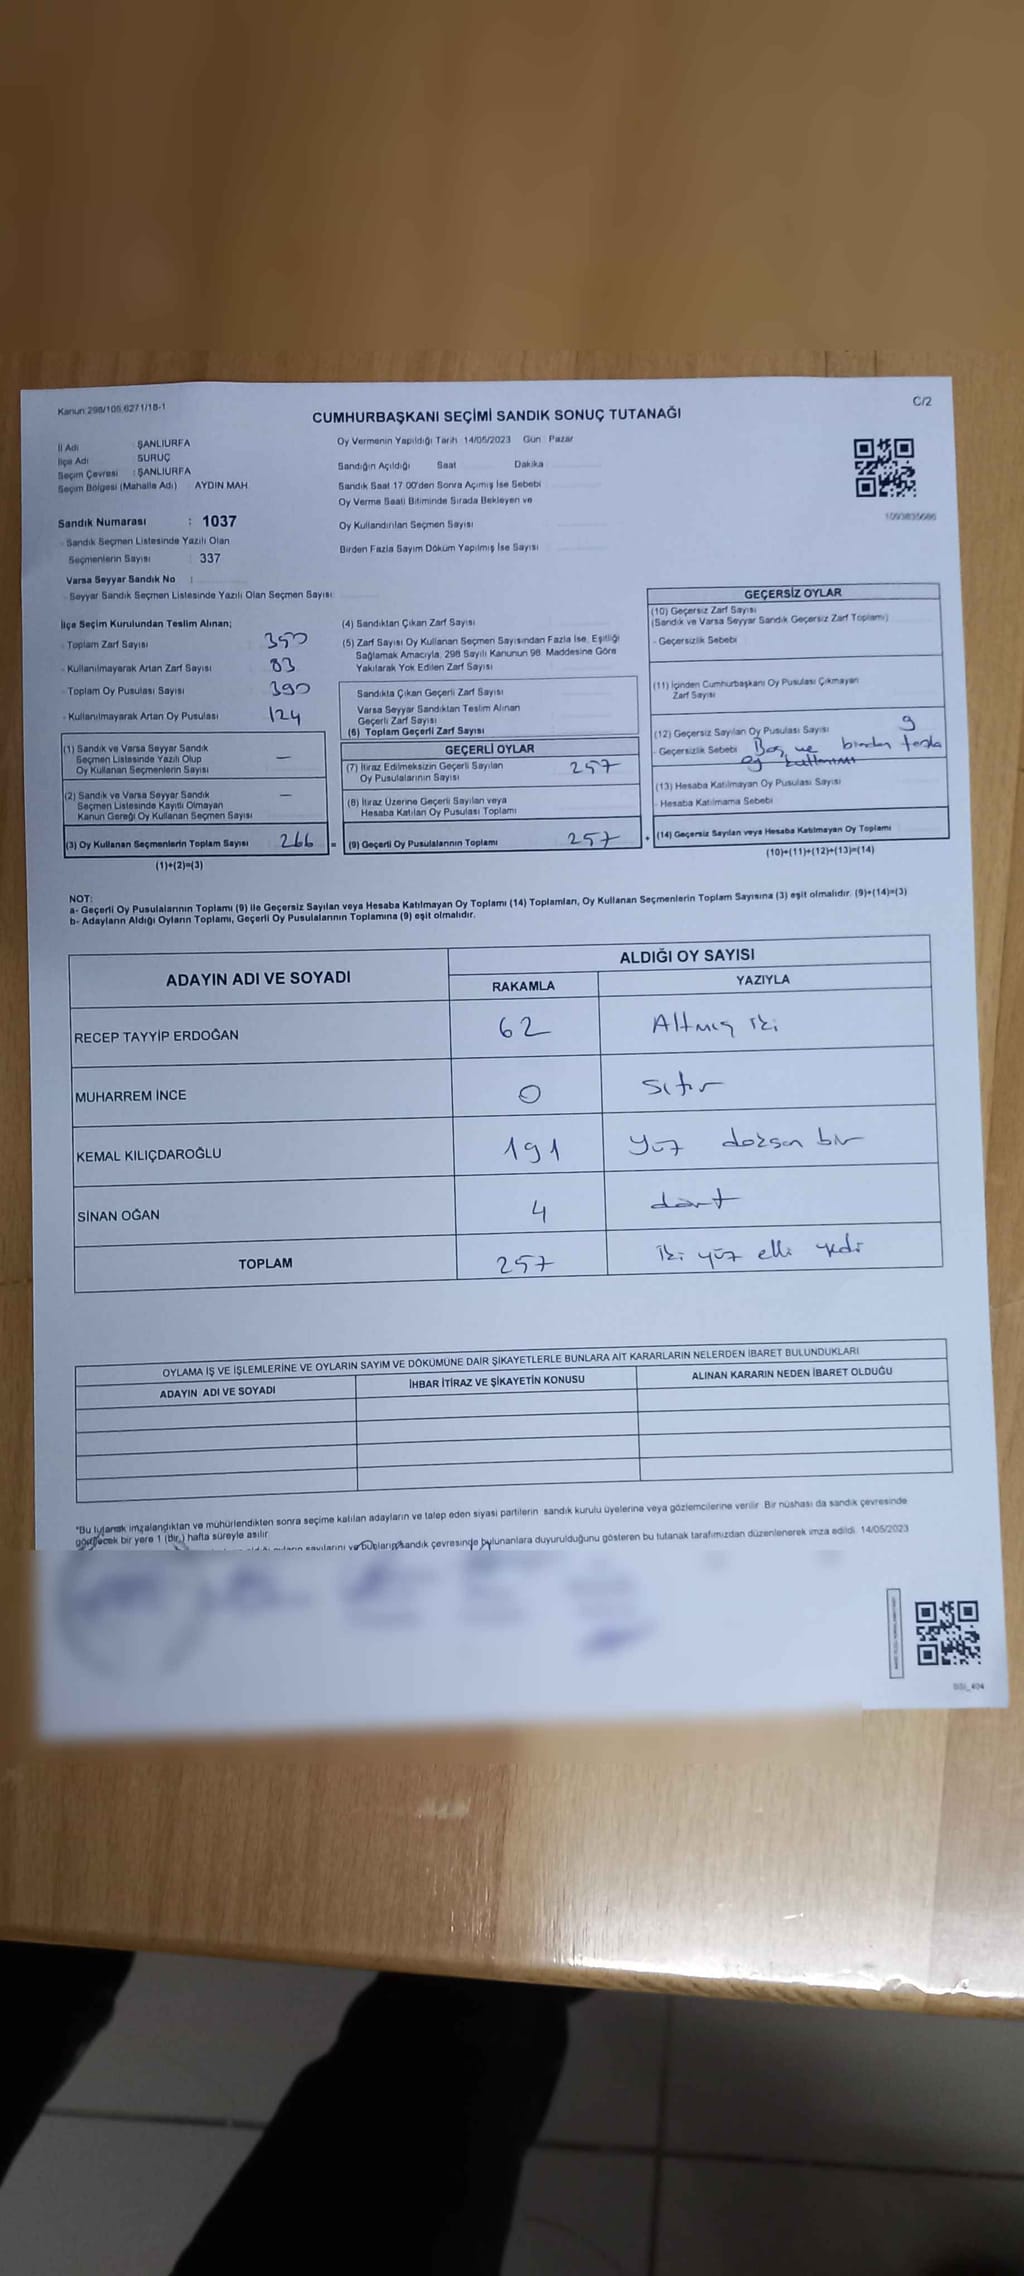 Kanun:298/105,6271/18-1
C/2
CUMHURBAŞKANI SEÇİMİ SANDIK SONUÇ TUTANAĞI
İl Adı : ŞANLIURFA
İlçe Adı : SURUÇ
Seçim Çevresi : ŞANLIURFA
Seçim Bölgesi (Mahalle Adı) AYDIN MAH.
Oy Vermenin Yapıldığı Tarih 14/05/2023 Gün Pazar
Sandığın Açıldığı Saat Dakika
Sandık Saat 17:00'den Sonra Açımış İse Sebebi
Oy Verme Saati Bitiminde Sırada Bekleyen ve
Oy Kullandırılan Seçmen Sayısı
Birden Fazla Sayım Döküm Yapılmış İse Sayısı
Sandık Numarası : 1037
- Sandık Seçmen Listesinde Yazılı Olan
Seçmenlerin Sayısı 337
Varsa Seyyar Sandık No :
- Seyyar Sandık Seçmen Listesinde Yazılı Olan Seçmen Sayısı
İlçe Seçim Kurulundan Teslim Alınan;
- Toplam Zarf Sayısı 350
- Kullanılmayarak Artan Zarf Sayısı 83
- Toplam Oy Pusulası Sayısı 390
- Kullanılmayarak Artan Oy Pusulası 124
(1) Sandık ve Varsa Seyyar Sandık
Seçmen Listesinde Yazılı Olup
Oy Kullanan Seçmenlerin Sayısı —
(2) Sandık ve Varsa Seyyar Sandık
Seçmen Listesinde Kayıtlı Olmayan
Kanun Gereği Oy Kullanan Seçmen Sayısı —
(3) Oy Kullanan Seçmenlerin Toplam Sayısı 266 =
(1)+(2)=(3)
(4) Sandıktan Çıkan Zarf Sayısı
(5) Zarf Sayısı Oy Kullanan Seçmen Sayısından Fazla İse, Eşitliği
Sağlamak Amacıyla, 298 Sayılı Kanunun 98. Maddesine Göre
Yakılarak Yok Edilen Zarf Sayısı
Sandıkta Çıkan Geçerli Zarf Sayısı
Varsa Seyyar Sandıktan Teslim Alınan
Geçerli Zarf Sayısı
(6) Toplam Geçerli Zarf Sayısı
GEÇERLİ OYLAR
(7) İtiraz Edilmeksizin Geçerli Sayılan
Oy Pusulalarının Sayısı 257
(8) İtiraz Üzerine Geçerli Sayılan veya
Hesaba Katılan Oy Pusulası Toplamı
(9) Geçerli Oy Pusulalarının Toplamı 257 +
GEÇERSİZ OYLAR
(10) Geçersiz Zarf Sayısı
(Sandık ve Varsa Seyyar Sandık Geçersiz Zarf Toplamı)
- Geçersizlik Sebebi
(11) İçinden Cumhurbaşkanı Oy Pusulası Çıkmayan
Zarf Sayısı
(12) Geçersiz Sayılan Oy Pusulası Sayısı 9
- Geçersizlik Sebebi Boş ve birden fazla
oy
(13) Hesaba Katılmayan Oy Pusulası Sayısı
- Hesaba Katılmama Sebebi
(14) Geçersiz Sayılan veya Hesaba Katılmayan Oy Toplamı
(10)+(11)+(12)+(13)=(14)
NOT:
a- Geçerli Oy Pusulalarının Toplamı (9) ile Geçersiz Sayılan veya Hesaba Katılmayan Oy Toplamı (14) Toplamları, Oy Kullanan Seçmenlerin Toplam Sayısına (3) eşit olmalıdır. (9)+(14)=(3)
b- Adayların Aldığı Oyların Toplamı, Geçerli Oy Pusulalarının Toplamına (9) eşit olmalıdır.
ADAYIN ADI VE SOYADI
ALDIĞI OY SAYISI
RAKAMLA YAZIYLA
RECEP TAYYİP ERDOĞAN 62 Altmış iki
MUHARREM İNCE 0 sıfır
KEMAL KILIÇDAROĞLU 191 Yüz doksan bir
SİNAN OĞAN 4 dört
TOPLAM 257 iki yüz elli yedi
OYLAMA İŞ VE İŞLEMLERİNE VE OYLARIN SAYIM VE DÖKÜMÜNE DAİR ŞİKAYETLERLE BUNLARA AİT KARARLARIN NELERDEN İBARET BULUNDUKLARI
ADAYIN ADI VE SOYADI İHBAR İTİRAZ VE ŞİKAYETİN KONUSU ALINAN KARARIN NEDEN İBARET OLDUĞU
*Bu tutanak imzalandıktan ve mühürlendikten sonra seçime katılan adayların ve talep eden siyasi partilerin sandık kurulu üyelerine veya gözlemcilerine verilir. Bir nüshası da sandık çevresinde
görülecek bir yere 1 (Bir) hafta süreyle asılır.
sayılarını ve bunların sandık çevresinde bulunanlara duyurulduğunu gösteren bu tutanak tarafımızdan düzenlenerek imza edildi. 14/05/2023